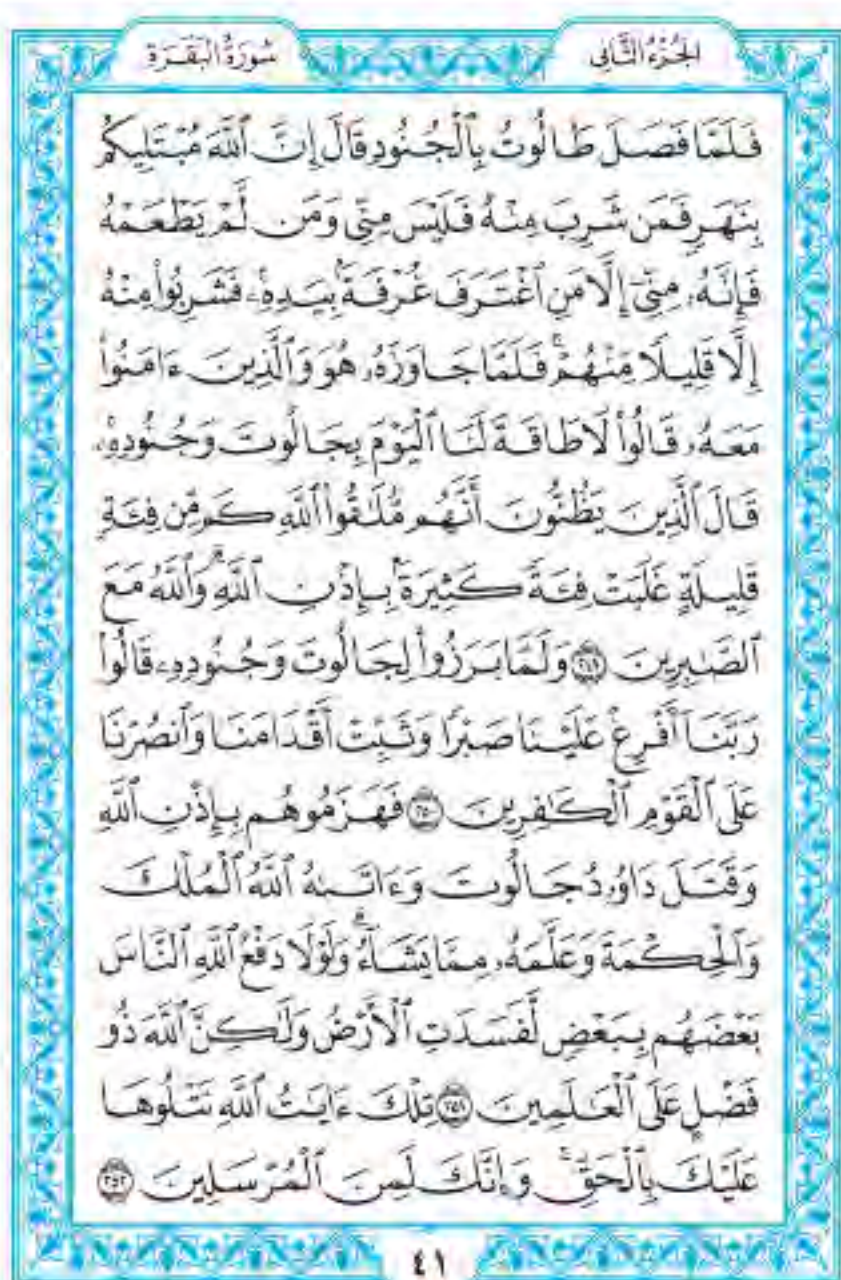 الجُزْءُ الثَّانِى
سُورَةُ الْبَقَرَةِ
فَلَمَّا فَصَلَ طَالُوتُ بِٱلْجُنُودِ قَالَ إِنَّ ٱللَّهَ مُبْتَلِيكُم
بِنَهَرٍ فَمَن شَرِبَ مِنْهُ فَلَيْسَ مِنِّى وَمَن لَّمْ يَطْعَمْهُ
فَإِنَّهُۥ مِنِّىٓ إِلَّا مَنِ ٱغْتَرَفَ غُرْفَةًۢ بِيَدِهِۦۚ فَشَرِبُوا۟ مِنْهُ
إِلَّا قَلِيلًا مِّنْهُمْۚ فَلَمَّا جَاوَزَهُۥ هُوَ وَٱلَّذِينَ ءَامَنُوا۟
مَعَهُۥ قَالُوا۟ لَا طَاقَةَ لَنَا ٱلْيَوْمَ بِجَالُوتَ وَجُنُودِهِۦۚ
قَالَ ٱلَّذِينَ يَظُنُّونَ أَنَّهُم مُّلَٰقُوا۟ ٱللَّهِ كَم مِّن فِئَةٍ
قَلِيلَةٍ غَلَبَتْ فِئَةً كَثِيرَةًۢ بِإِذْنِ ٱللَّهِۗ وَٱللَّهُ مَعَ
ٱلصَّٰبِرِينَ ٢٤٩ وَلَمَّا بَرَزُوا۟ لِجَالُوتَ وَجُنُودِهِۦ قَالُوا۟
رَبَّنَآ أَفْرِغْ عَلَيْنَا صَبْرًا وَثَبِّتْ أَقْدَامَنَا وَٱنصُرْنَا
عَلَى ٱلْقَوْمِ ٱلْكَٰفِرِينَ ٢٥٠ فَهَزَمُوهُم بِإِذْنِ ٱللَّهِ
وَقَتَلَ دَاوُۥدُ جَالُوتَ وَءَاتَىٰهُ ٱللَّهُ ٱلْمُلْكَ
وَٱلْحِكْمَةَ وَعَلَّمَهُۥ مِمَّا يَشَآءُۗ وَلَوْلَا دَفْعُ ٱللَّهِ ٱلنَّاسَ
بَعْضَهُم بِبَعْضٍ لَّفَسَدَتِ ٱلْأَرْضُ وَلَٰكِنَّ ٱللَّهَ ذُو
فَضْلٍ عَلَى ٱلْعَٰلَمِينَ ٢٥١ تِلْكَ ءَايَٰتُ ٱللَّهِ نَتْلُوهَا
عَلَيْكَ بِٱلْحَقِّۚ وَإِنَّكَ لَمِنَ ٱلْمُرْسَلِينَ ٢٥٢
٤١